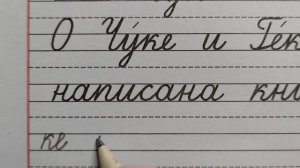 О Чу́ке и Ге́к
написана кни
ке